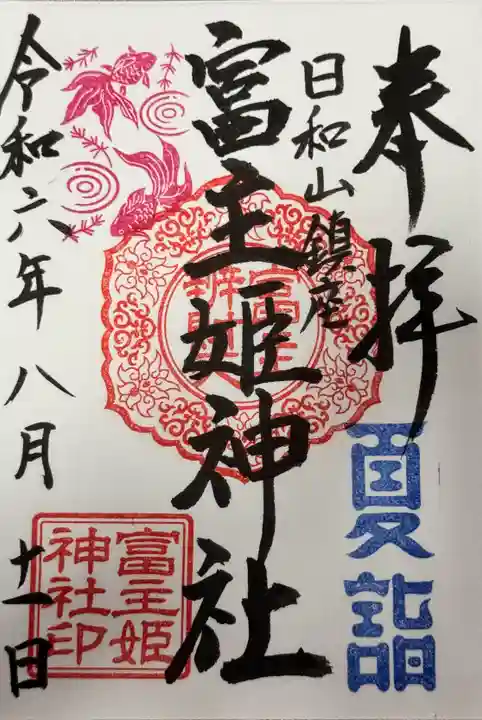 奉拝
夏詣
日和山鎮座
富主姫神社
富主姫
神社印
令和六年八月十一日